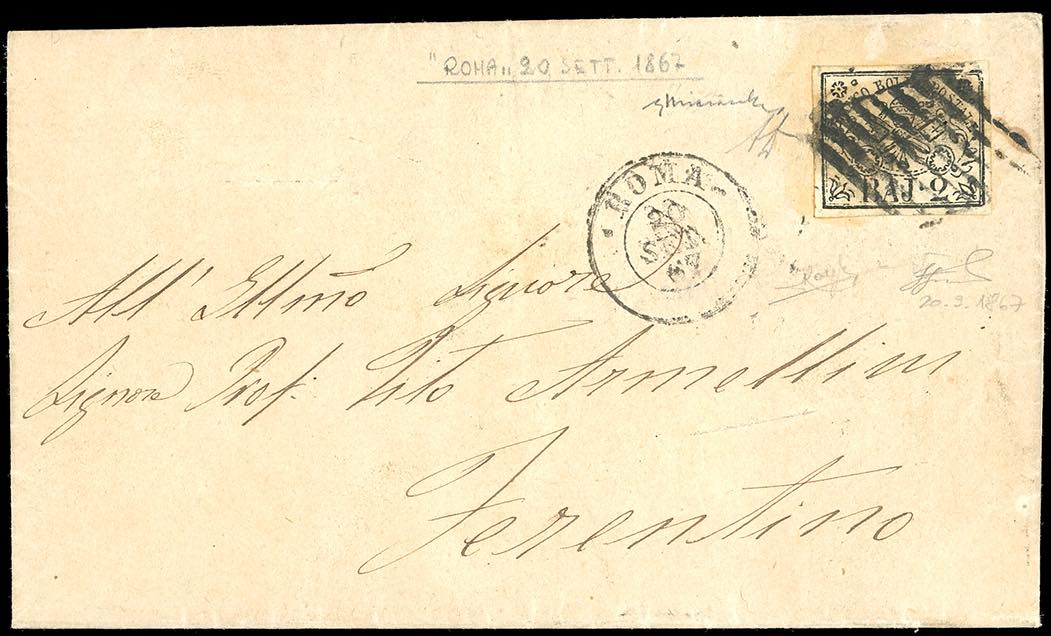 "ROMA" 20 SETT. 1867
BOL POSTAL
BAJ 2
ROMA
20
SET
67
20.9.1867
All' Illmo Signore
Signore Prof. Tito Armellini
Ferentino